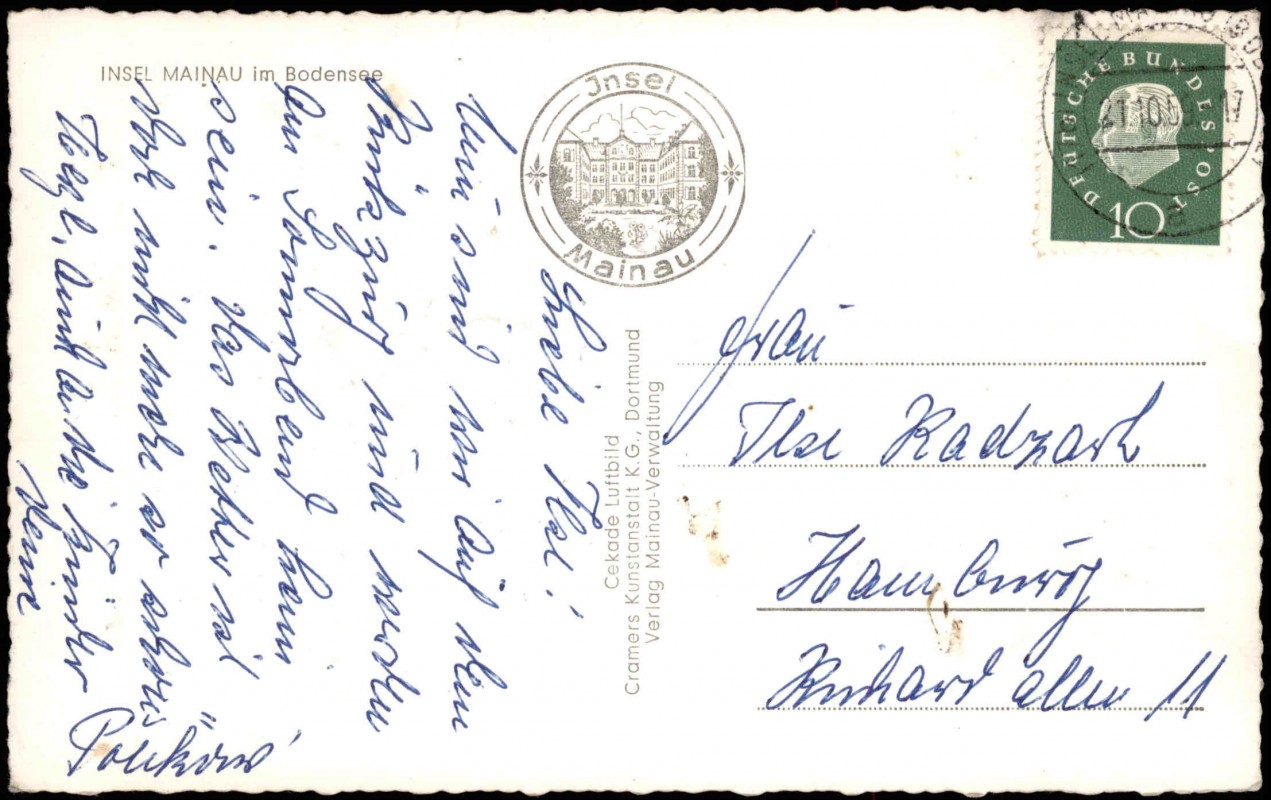 INSEL MAINAU im Bodensee
Insel
Mainau
Liebe Ilse!
Nun sind wir auf dem
Rückzug und werden
am Sonnabend heim
sein. Das Wetter ist
hier nicht mehr so schön
Ilse, und die Kinder
Deine
Cekade Luftbild
Cramers Kunstanstalt K.G., Dortmund
Verlag Mainau-Verwaltung
DEUTSCHE BUNDESPOST
10
21.10.59
a
Frau
Ilse Radzark
Hamburg
Richard allee 11